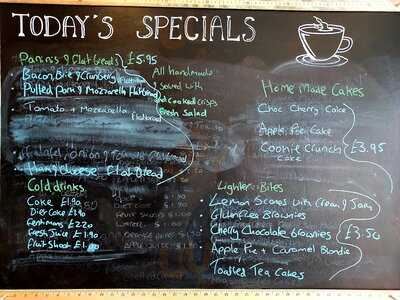 TODAY'S SPECIALS
Paninis & flatbreads £5.95
Bacon, Brie & Cranberry
Pulled Pork & Mozzarella Flatbread
Tomato + Mozzarella
(flatbread)
Ham & Cheese Flat Bread
All handmade
& served with
cooked crisps
Fresh Salad
Cold drinks
Coke £1.90
Diet Coke £1.90
Fentimans £2.20
Fresh Juice £1.90
Fruit Shoot £1.
Home Made Cakes
Choc Cherry Cake
Apple Pie Cake
Cookie Crunch
Cake
£3.95
Lighter Bites
Lemon Scones with Cream & Jam
Gluten free Brownies
Cherry Chocolate Brownies
Apple Pie + Caramel Blondie
Toasted Tea Cakes
£3.50